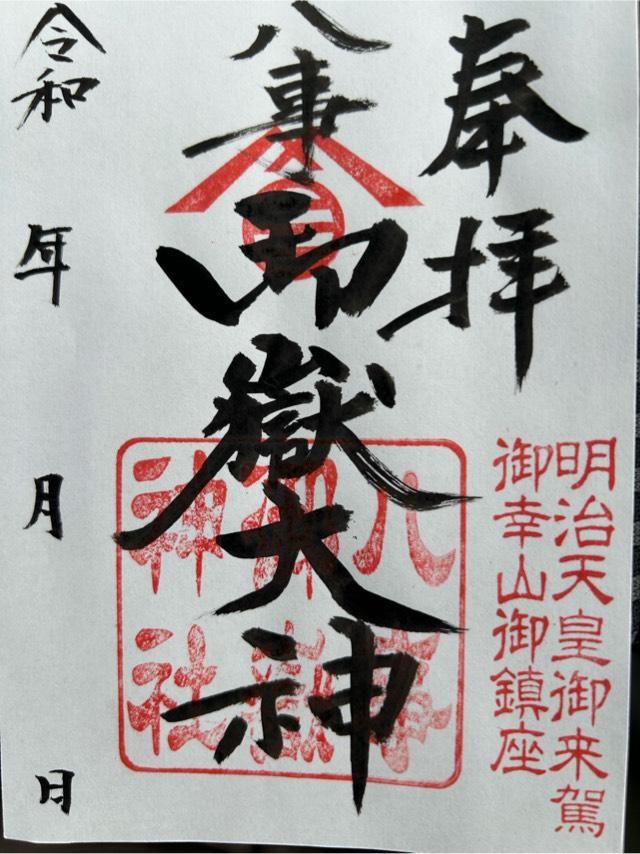 奉拝
明治天皇御来駕
御幸山御鎮座
八事御嶽大神
八事
御嶽
神社
令和 年 月 日